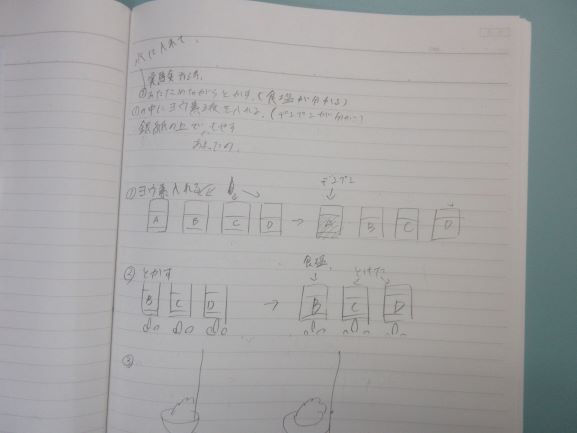 水に入れて、
実験方法
②あたためながらとかす。(食塩が分かる)
①の中にヨウ素液を入れる。(デンプンが分かる)
銀紙の上で もやす
あまったの
①ヨウ素入れる
デンプン
A B C D → A B C D
②とかす
食塩
とけた
B C D → B C D
③